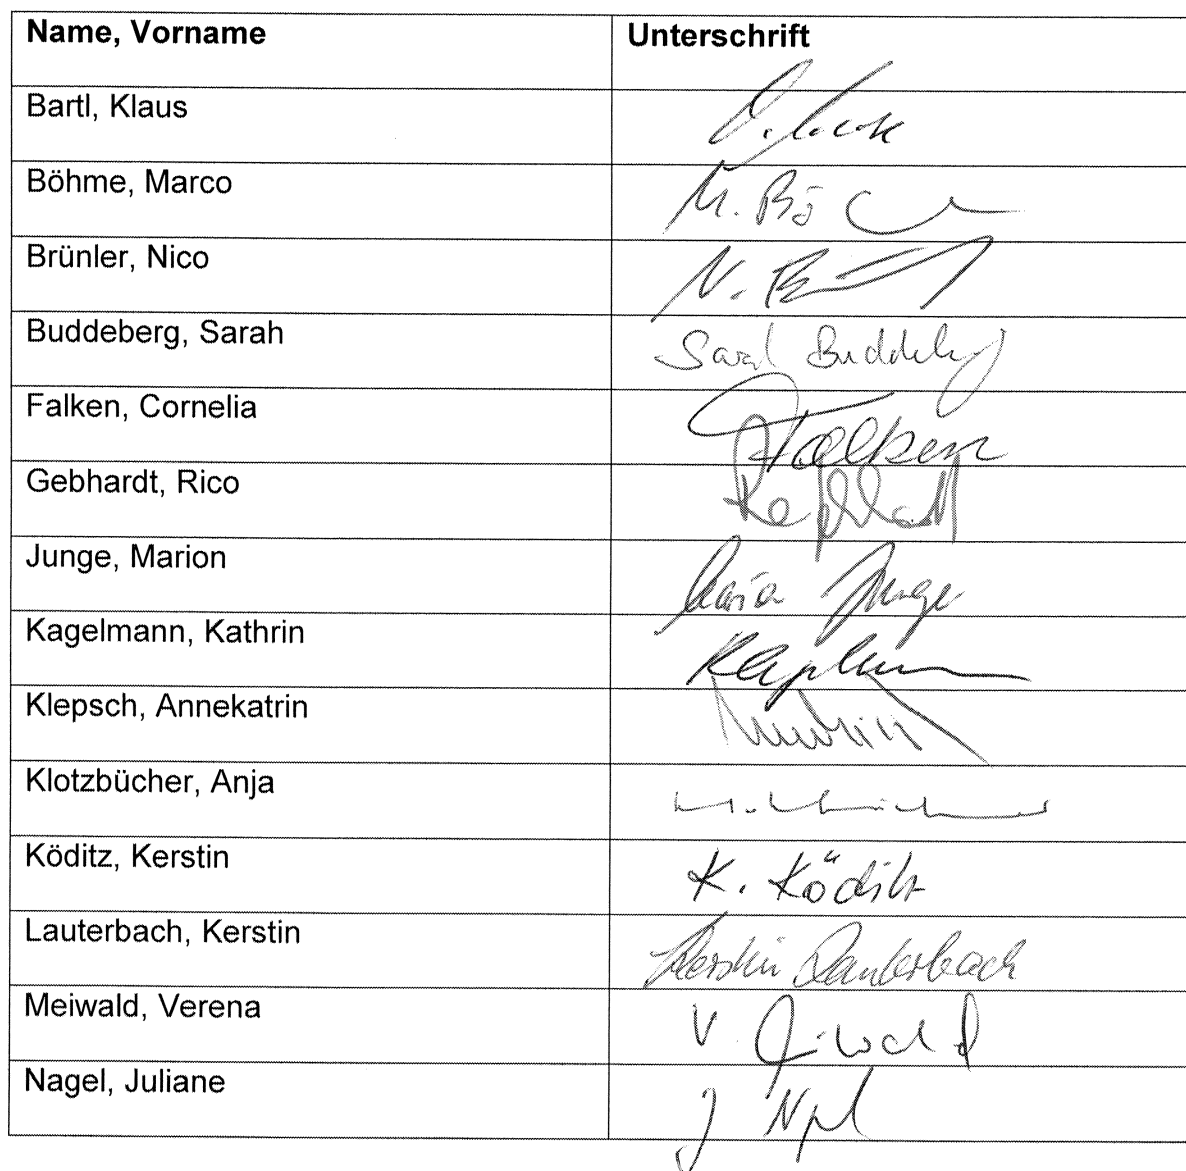 Name, Vorname Unterschrift
Bartl, Klaus
Böhme, Marco M. Bö
Brünler, Nico N.
Buddeberg, Sarah Sarah Buddeberg
Falken, Cornelia Falken
Gebhardt, Rico
Junge, Marion Junge
Kagelmann, Kathrin
Klepsch, Annekatrin
Klotzbücher, Anja
Köditz, Kerstin K. Köditz
Lauterbach, Kerstin Kerstin Lauterbach
Meiwald, Verena V. Meiwald
Nagel, Juliane J Nagel